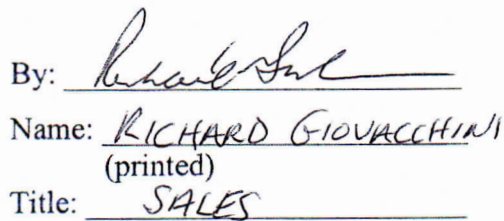 By:
Name: RICHARD GIOVACCHINI
(printed)
Title: SALES